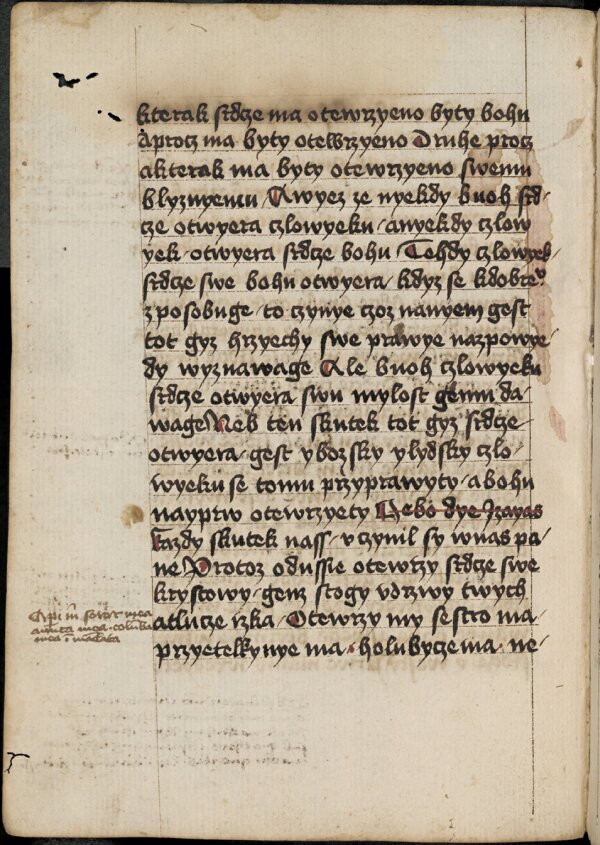 kterak srdcze ma otewrzyeno byty bohu
Aprocz ma byty otewrzyeno Druhe procz
akterak ma byty otewrzyeno swemu
blyznyemu Awyez ze nyekdy buoh srd-
cze otwyera czlowyeku anyekdy czlow
yek otwyera srdcze bohu Tehdy czlowyek
srdcze swe bohu otwyera kdyz se kdobre
zposobuge to czynye czoz nanyem gest
tot gyz hrzyechy swe prawye nazpowye
dy wyznawage Ale buoh czlowyeku
srdcze otwyera swu mylost gemu da-
wage Neb ten skutek tot gyz srdcze
otwyera gest ybozsky ylydsky czlo-
wyeku se tomu przyprawyty abohu
nayprw otewrzyety Nebo dye Izayas
kazdy skutek nass vczynil sy wnas pa-
ne Protoz odussie otewrzy srdcze swe
krystowy genz stogy vdrzwy twych
atlucze rzka Otewrzy my sestro ma
przyetelkynye ma holubycze ma ne-
Api m soror mea
amica mea columba
mea